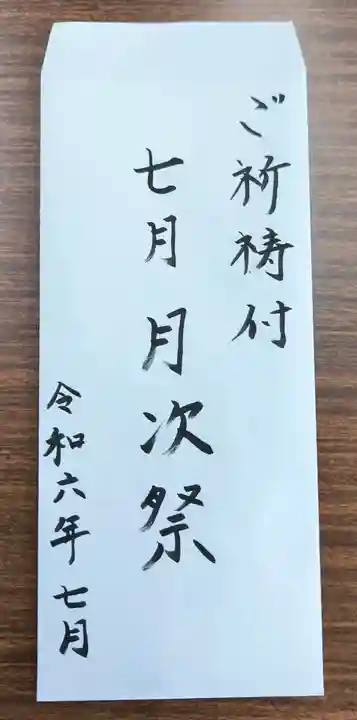 ご祈祷付
七月 月次祭
令和六年 七月